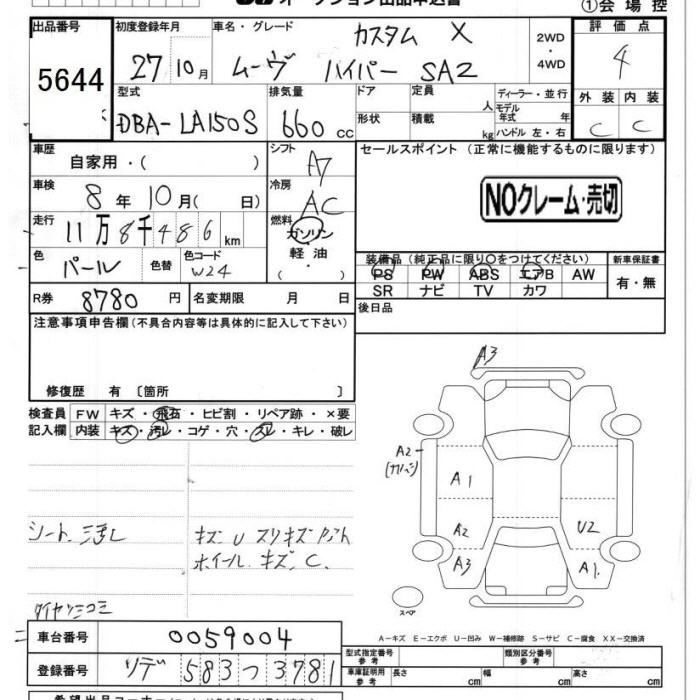 オークション出品申込書
①会場控
出品番号 初度登録年月 車名・グレード カスタム X 2WD・4WD 評価点
5644 27 10月 ムーヴ ハイパー SA2 4
型式 排気量 ドア 定員 人 ディーラー・並行 外装 内装
DBA-LA150S 660 cc 形状 積載 kg モデル年式 年 ハンドル 左・右 C C
車歴 自家用・( ) シフト A7 セールスポイント (正常に機能するものに限ります)
車検 8年 10月( 日) 冷房 AC NOクレーム・売切
走行 11万8千486km 燃料 ガソリン・軽油・( )
色 パール 色替 色コード W24 装備品 (純正品に限り○をつけてください) 新車保証書
PS PW ABS エアB AW 有・無
SR ナビ TV カワ
R券 8780円 名変期限 月 日 後日品
注意事項申告欄(不具合内容等は具体的に記入して下さい)
修復歴 有 〔箇所 〕
検査員 FW キズ・飛石・ヒビ割・リペア跡・×要
記入欄 内装 キズ・汚レ・コゲ・穴・スレ・キレ・破レ
A3
A2
A1
A2 U2
A3 A1.
スペア
シート
キズ U スリキズ
ホイール キズ、C.
A-キズ E-エクボ U-凹み W-補修跡 S-サビ C-腐食 XX-交換済
車台番号 0059004 型式指定番号 参考 類別区分番号 参考
登録番号 ソデ 583 つ 3781 車庫証明用 参考 長さ 幅 高さ